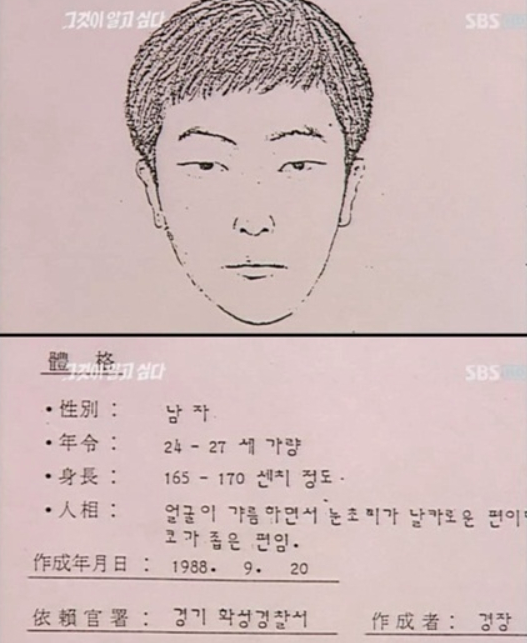 그것이 알고 싶다
SBS
體 格
그것이 알고 싶다
SBS
• 性別 : 남 자
• 年令 : 24 - 27 세 가량
• 身長 : 165 - 170 센치 정도.
• 人相 : 얼굴이 갸름 하면서 눈초리가 날카로운 편이
코가 좁은 편임.
作成年月日 : 1988. 9. 20
依賴官署 : 경기 화성경찰서 作成者 : 경장